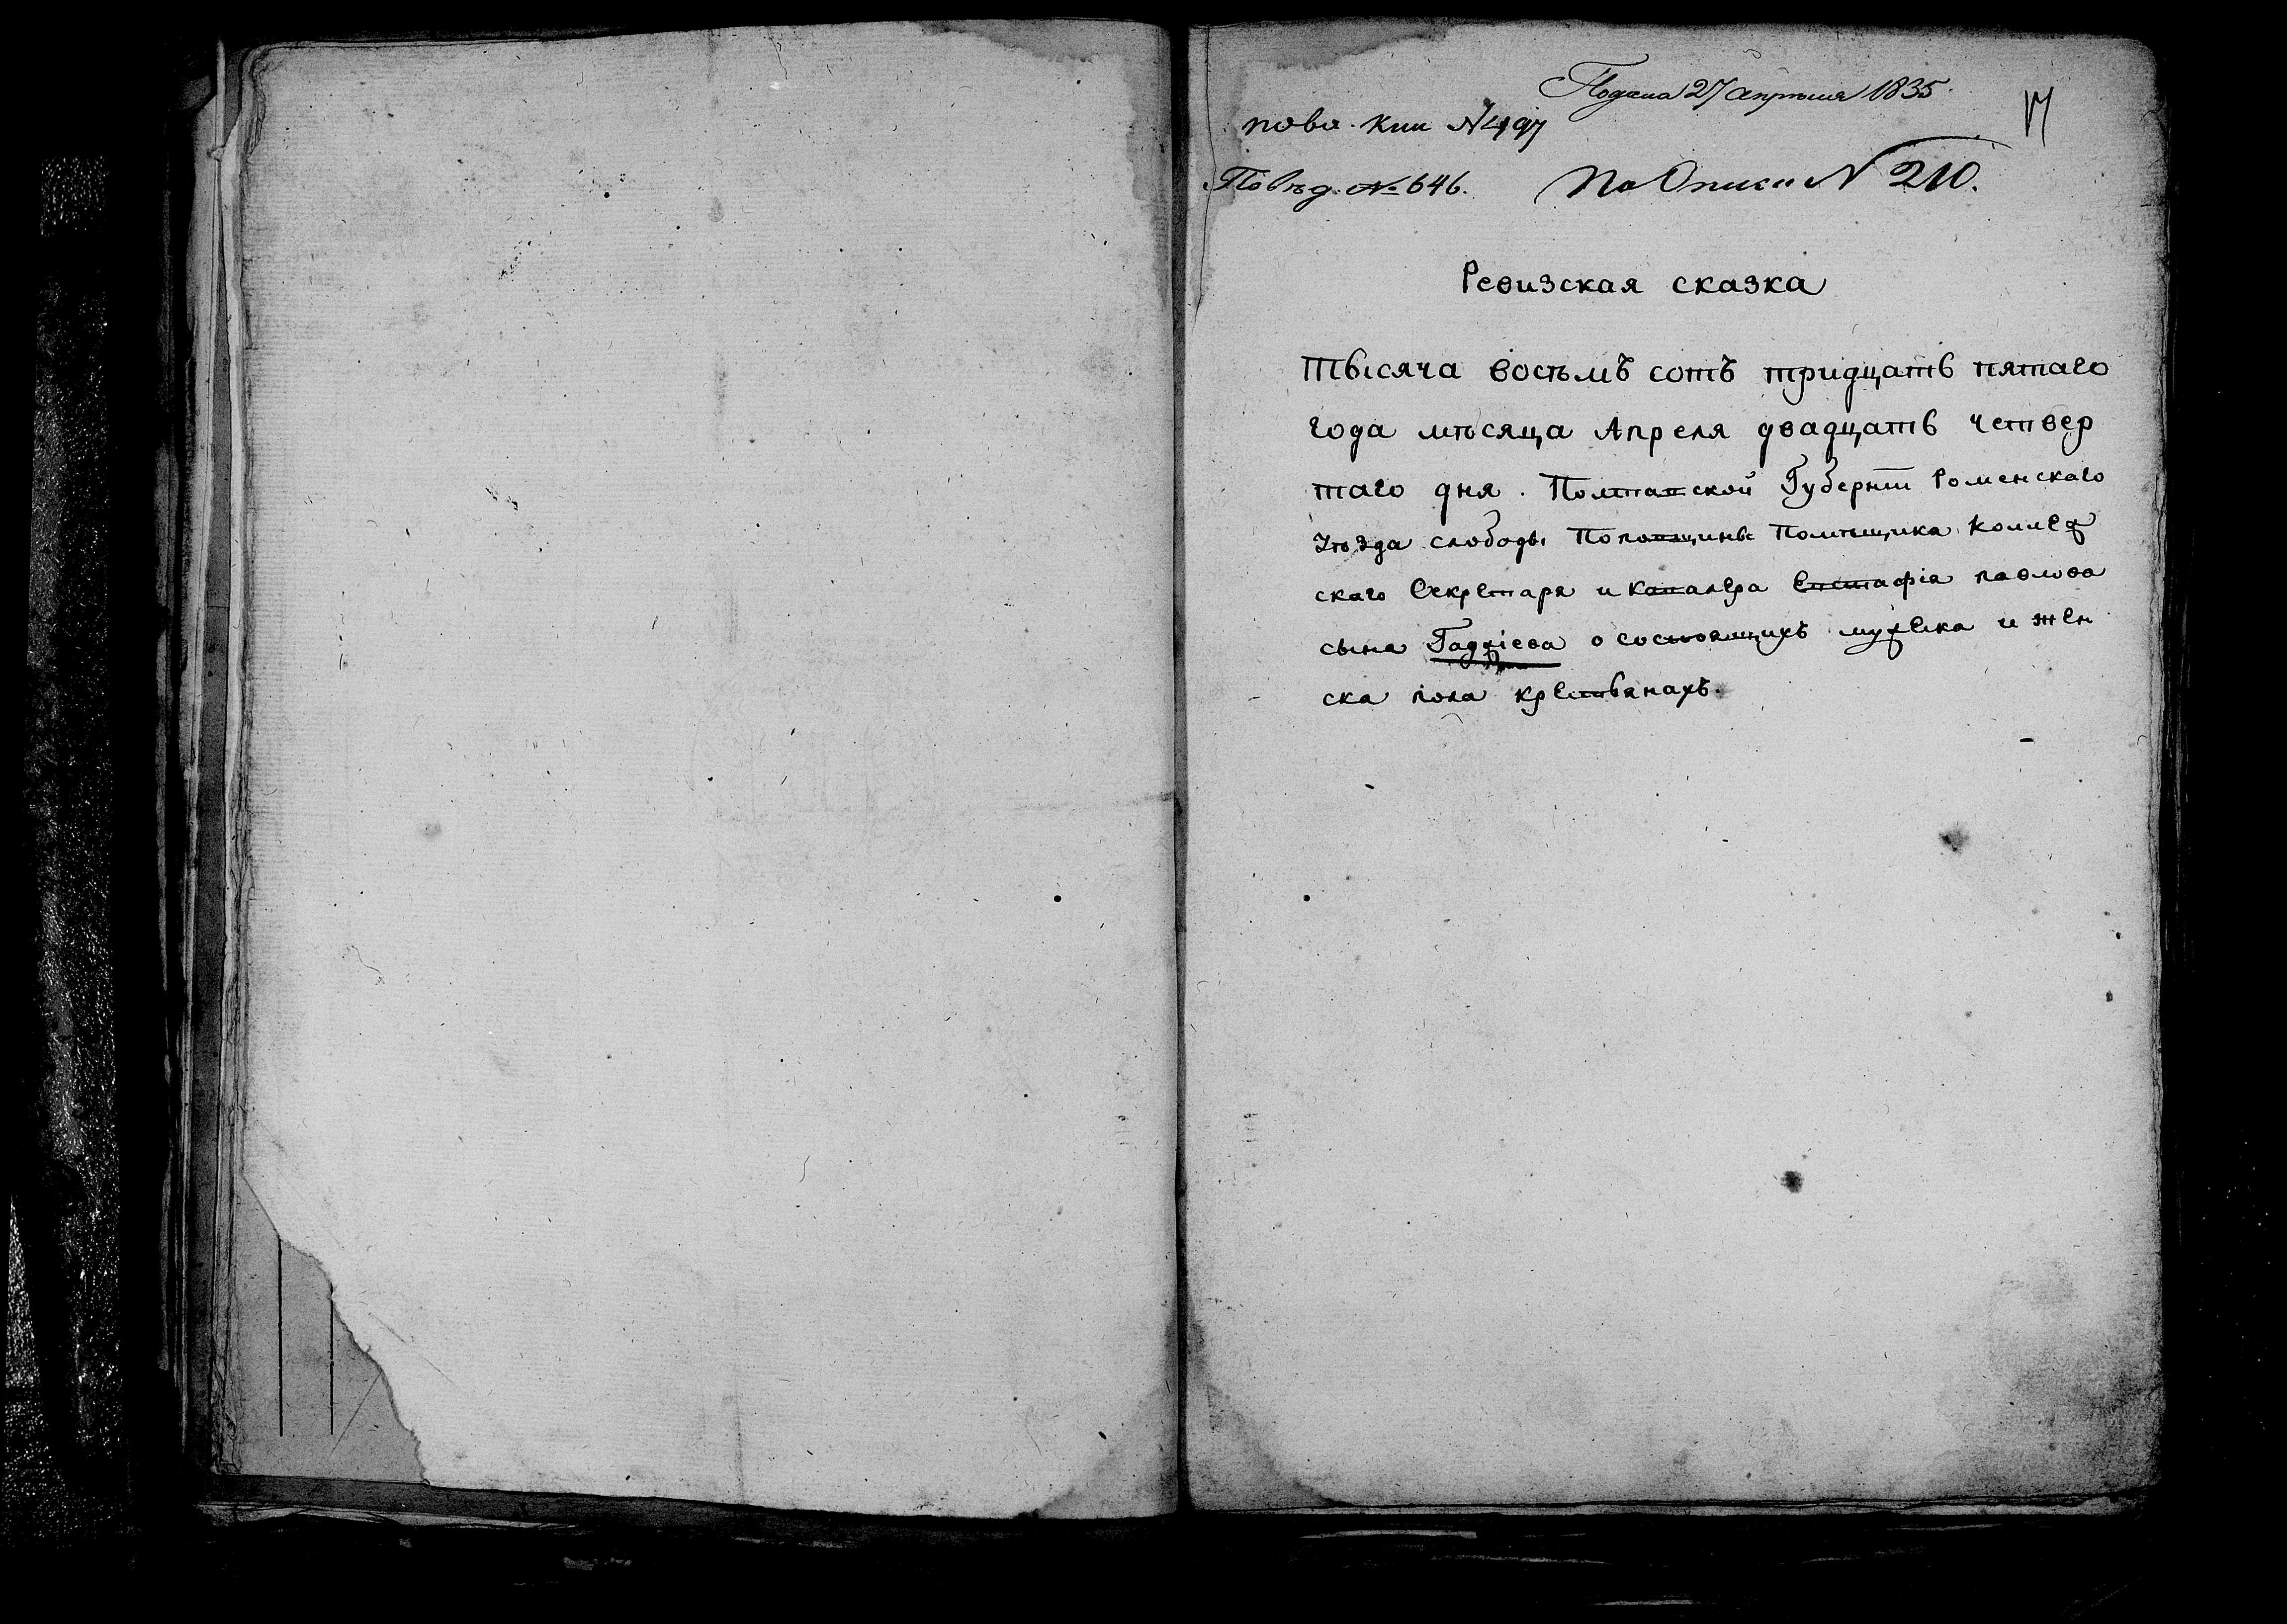 Подана 27 апреля 1835.
17
по вх. кни №497
По вѣд. №646.
По Описи №210.
Ревизская сказка
тысяча восъмъ сотъ тридцать пятаго
года мѣсяца Апреля двадцать четвер
таго дня. Полтавской Губернiи Роменскаго
Уѣзда слободы Поповщины Помѣщика Колеж
скаго Секретаря и Кавалера Евстафiя павлова
сына Гаджiева о состоящихъ мужеска и жен
ска пола крестьянахъ.